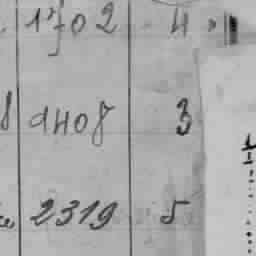 1702 4
8 1408 3
2319 5